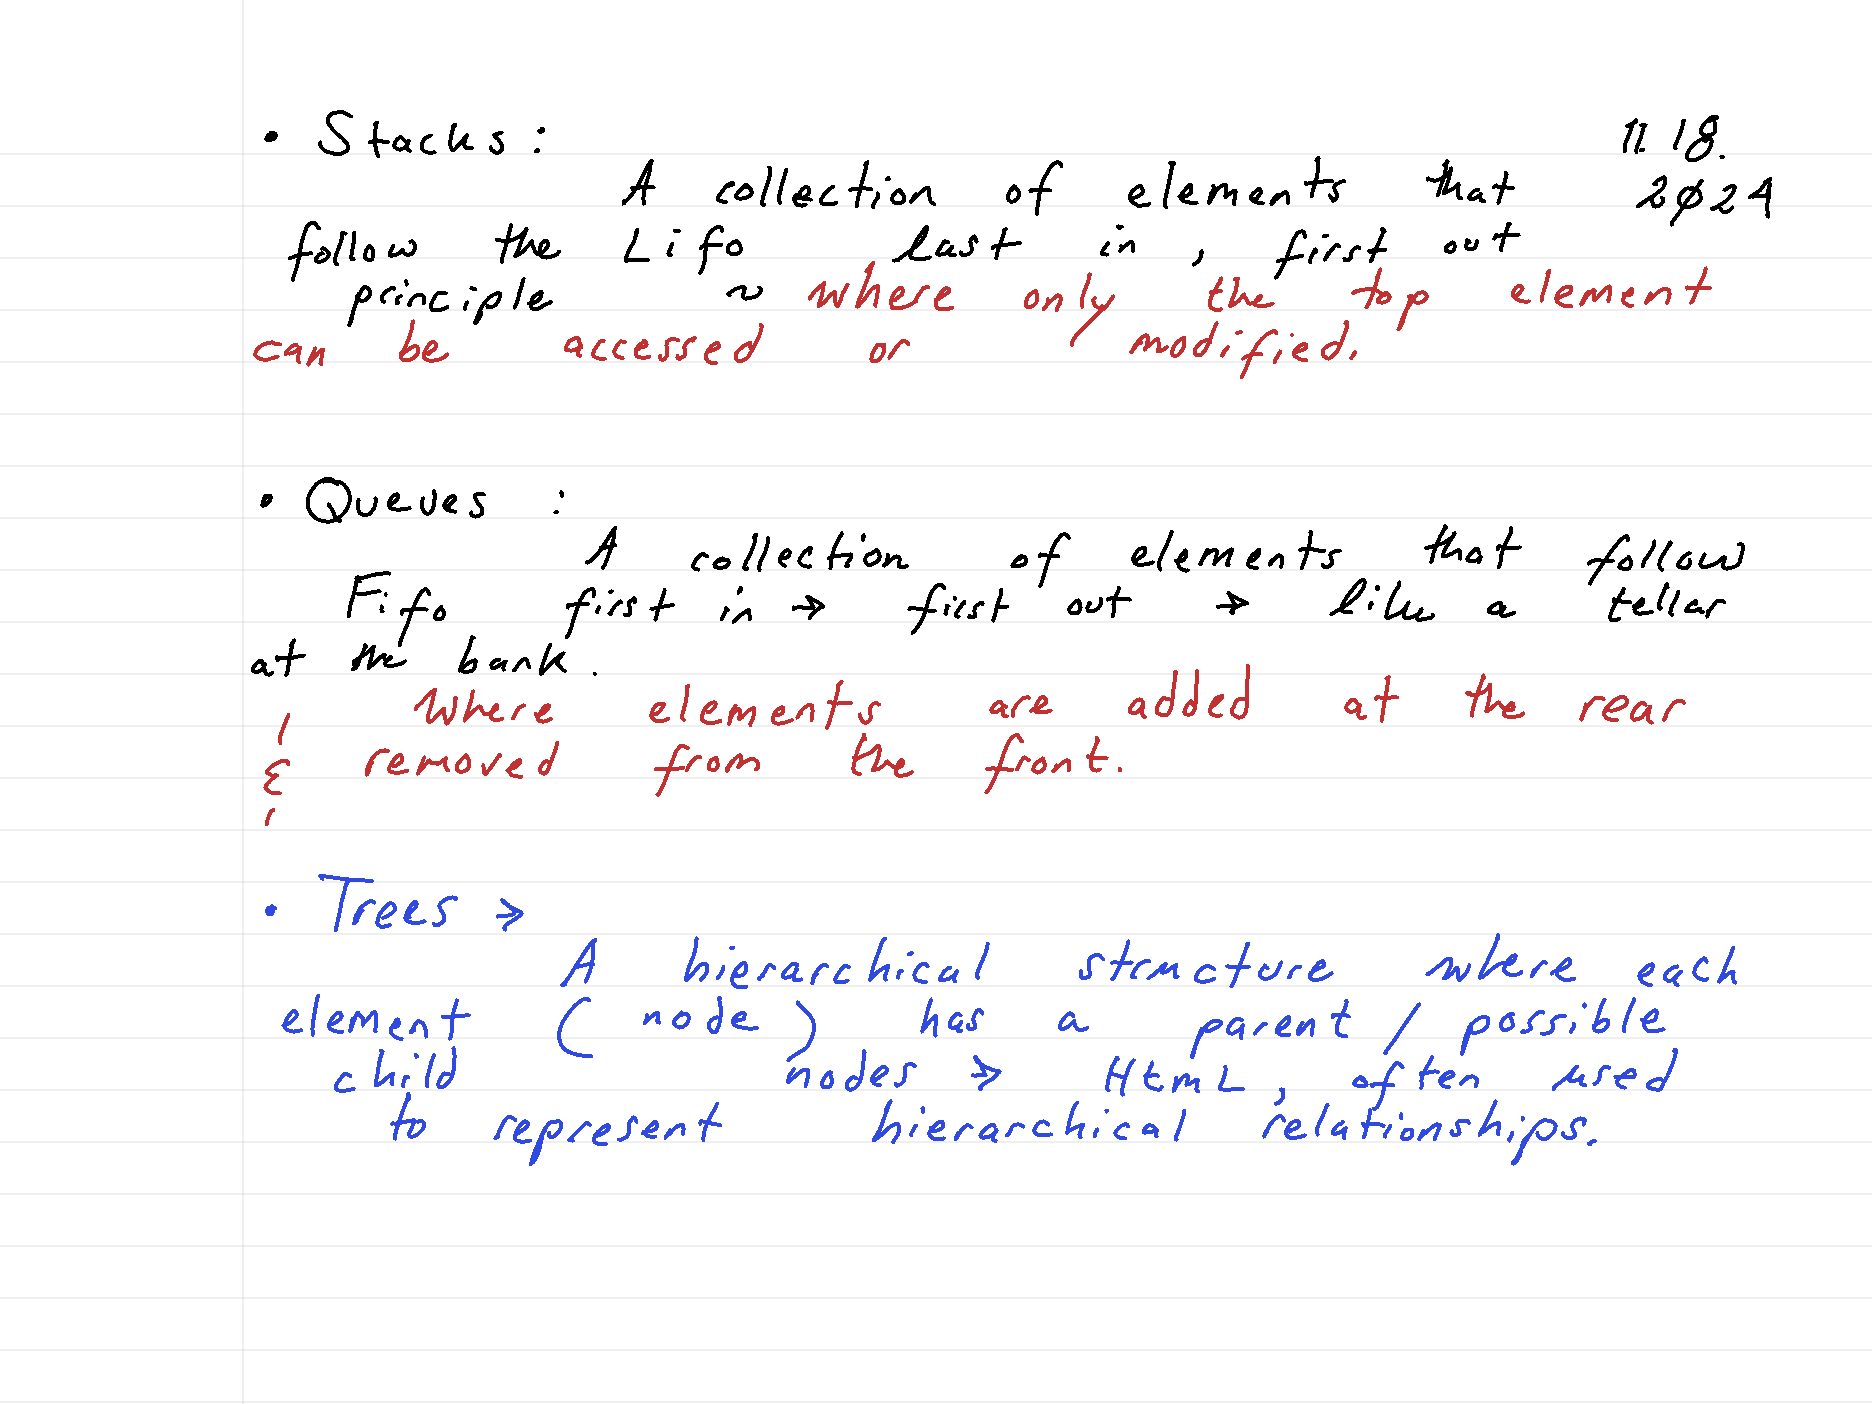 • Stacks:
11. 18.
2024
A collection of elements that
follow the Lifo last in, first out
principle ~ where only the top element
can be accessed or modified.
• Queues :
A collection of elements that follow
Fifo first in → first out → like a tellar
at the bank.
Where elements are added at the rear
& removed from the front.
• Trees →
A hierarchical structure where each
element (node) has a parent / possible
child nodes → HtmL, often used
to represent hierarchical relationships.